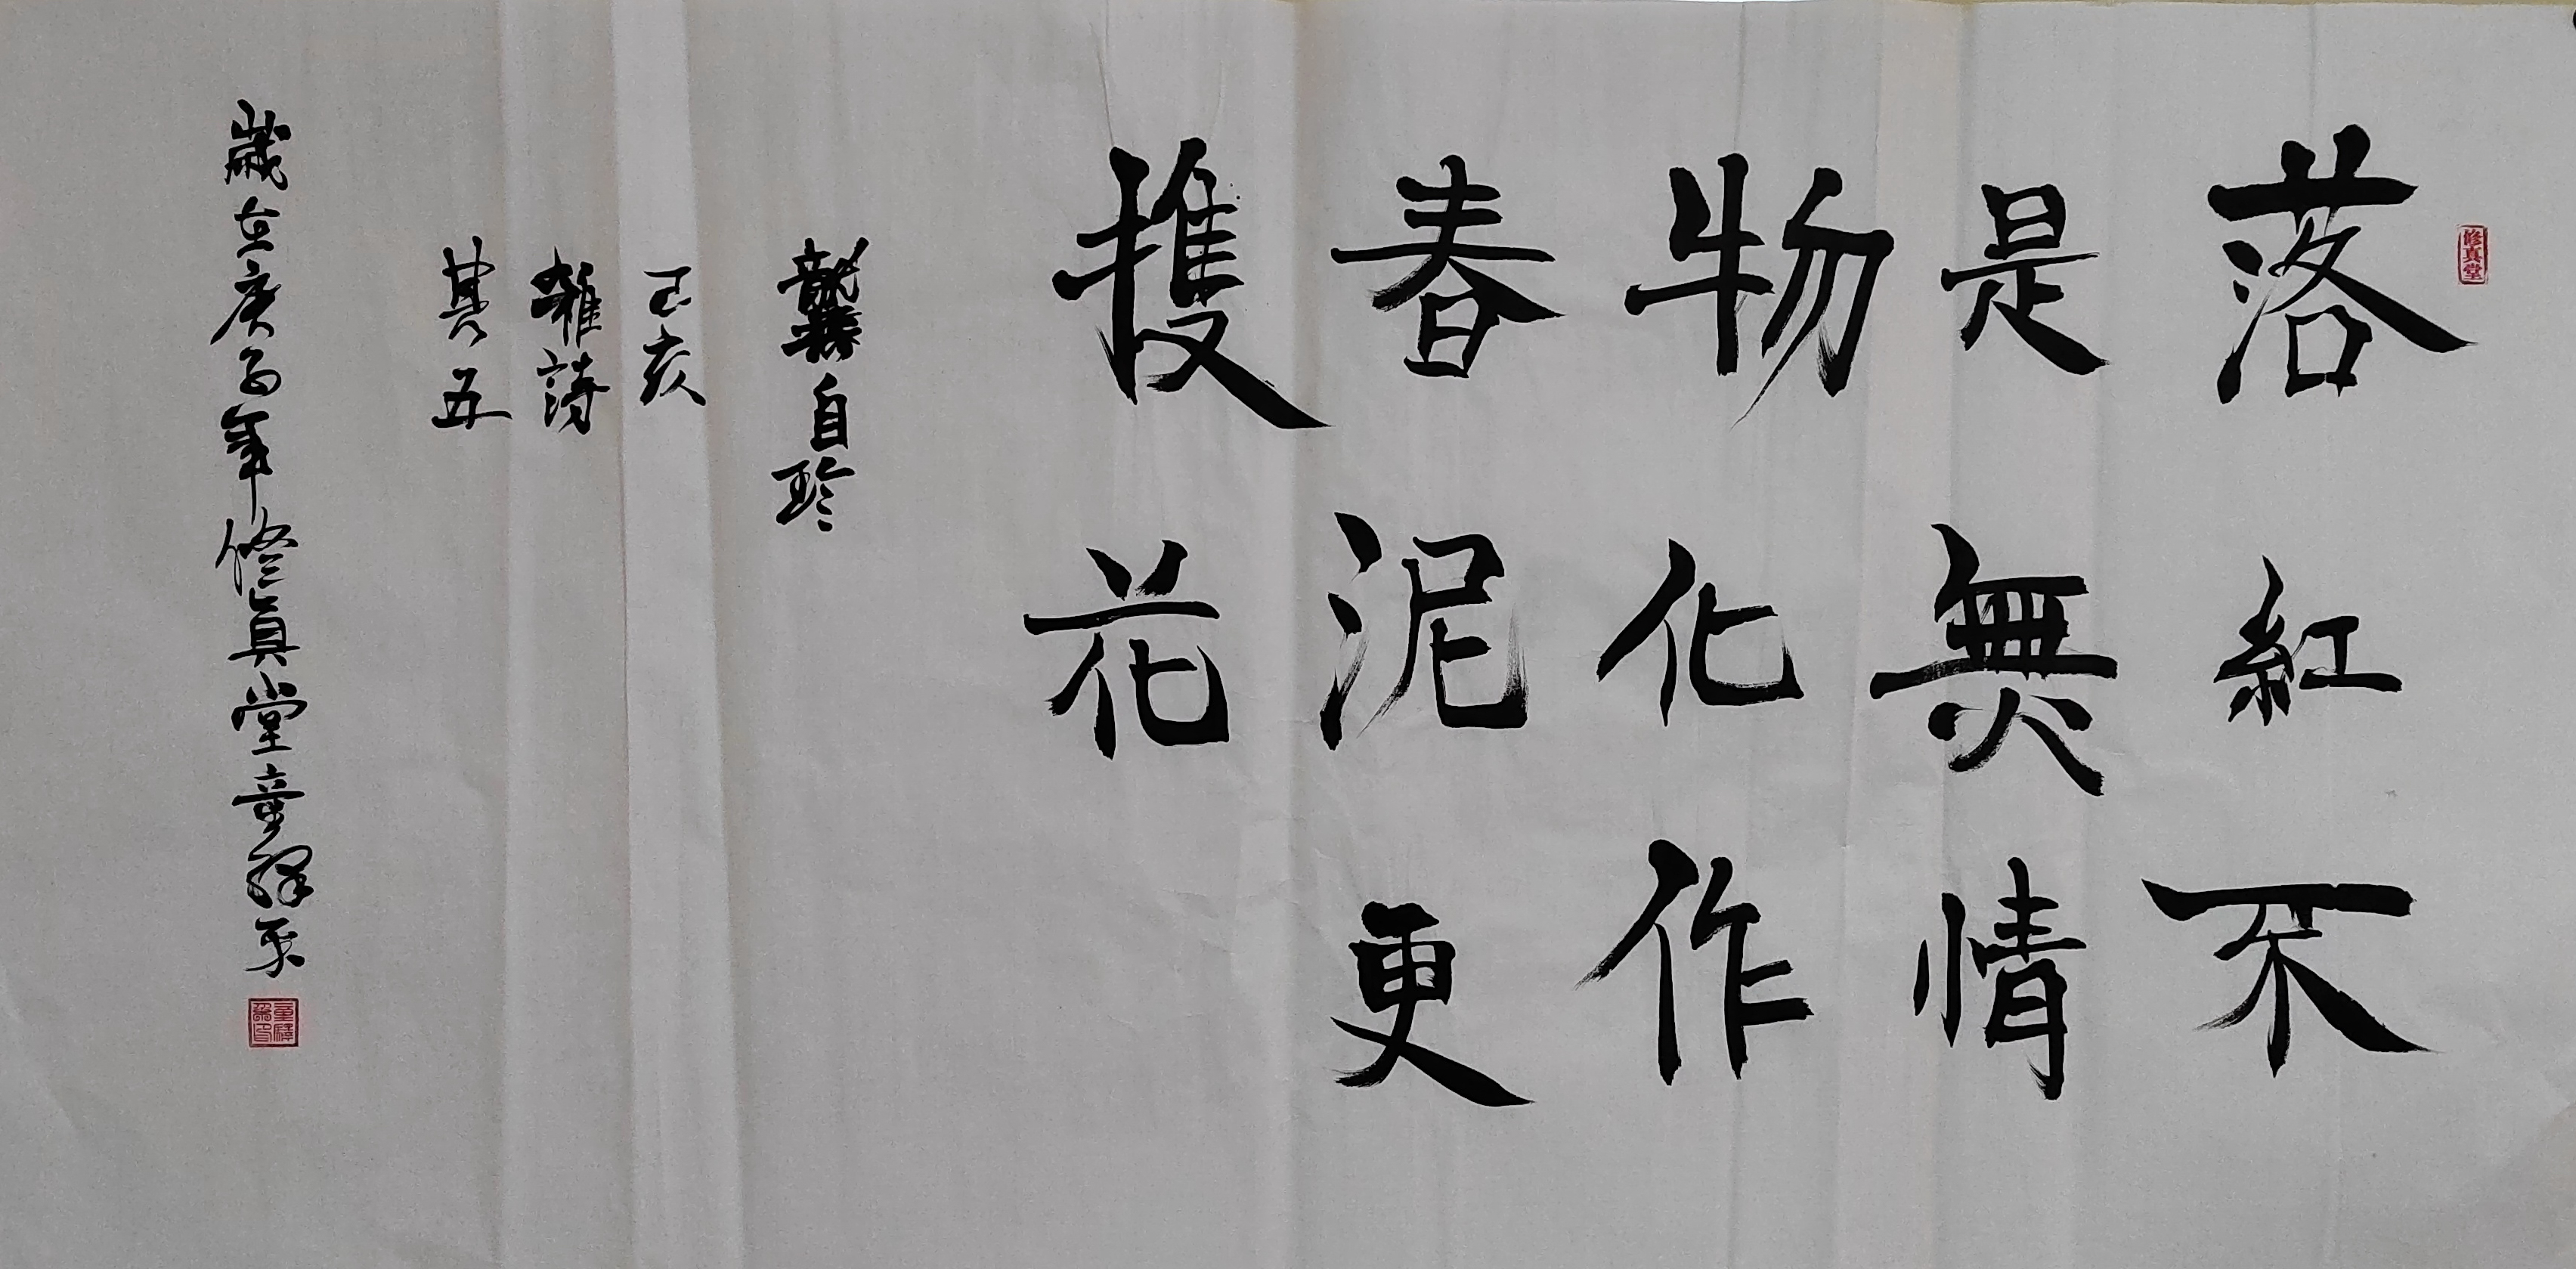 修真堂
落紅不
是無情
物化作
春泥更
擭花
龔自珍
己亥
雜詩
其五
歲在庚子年修真堂童